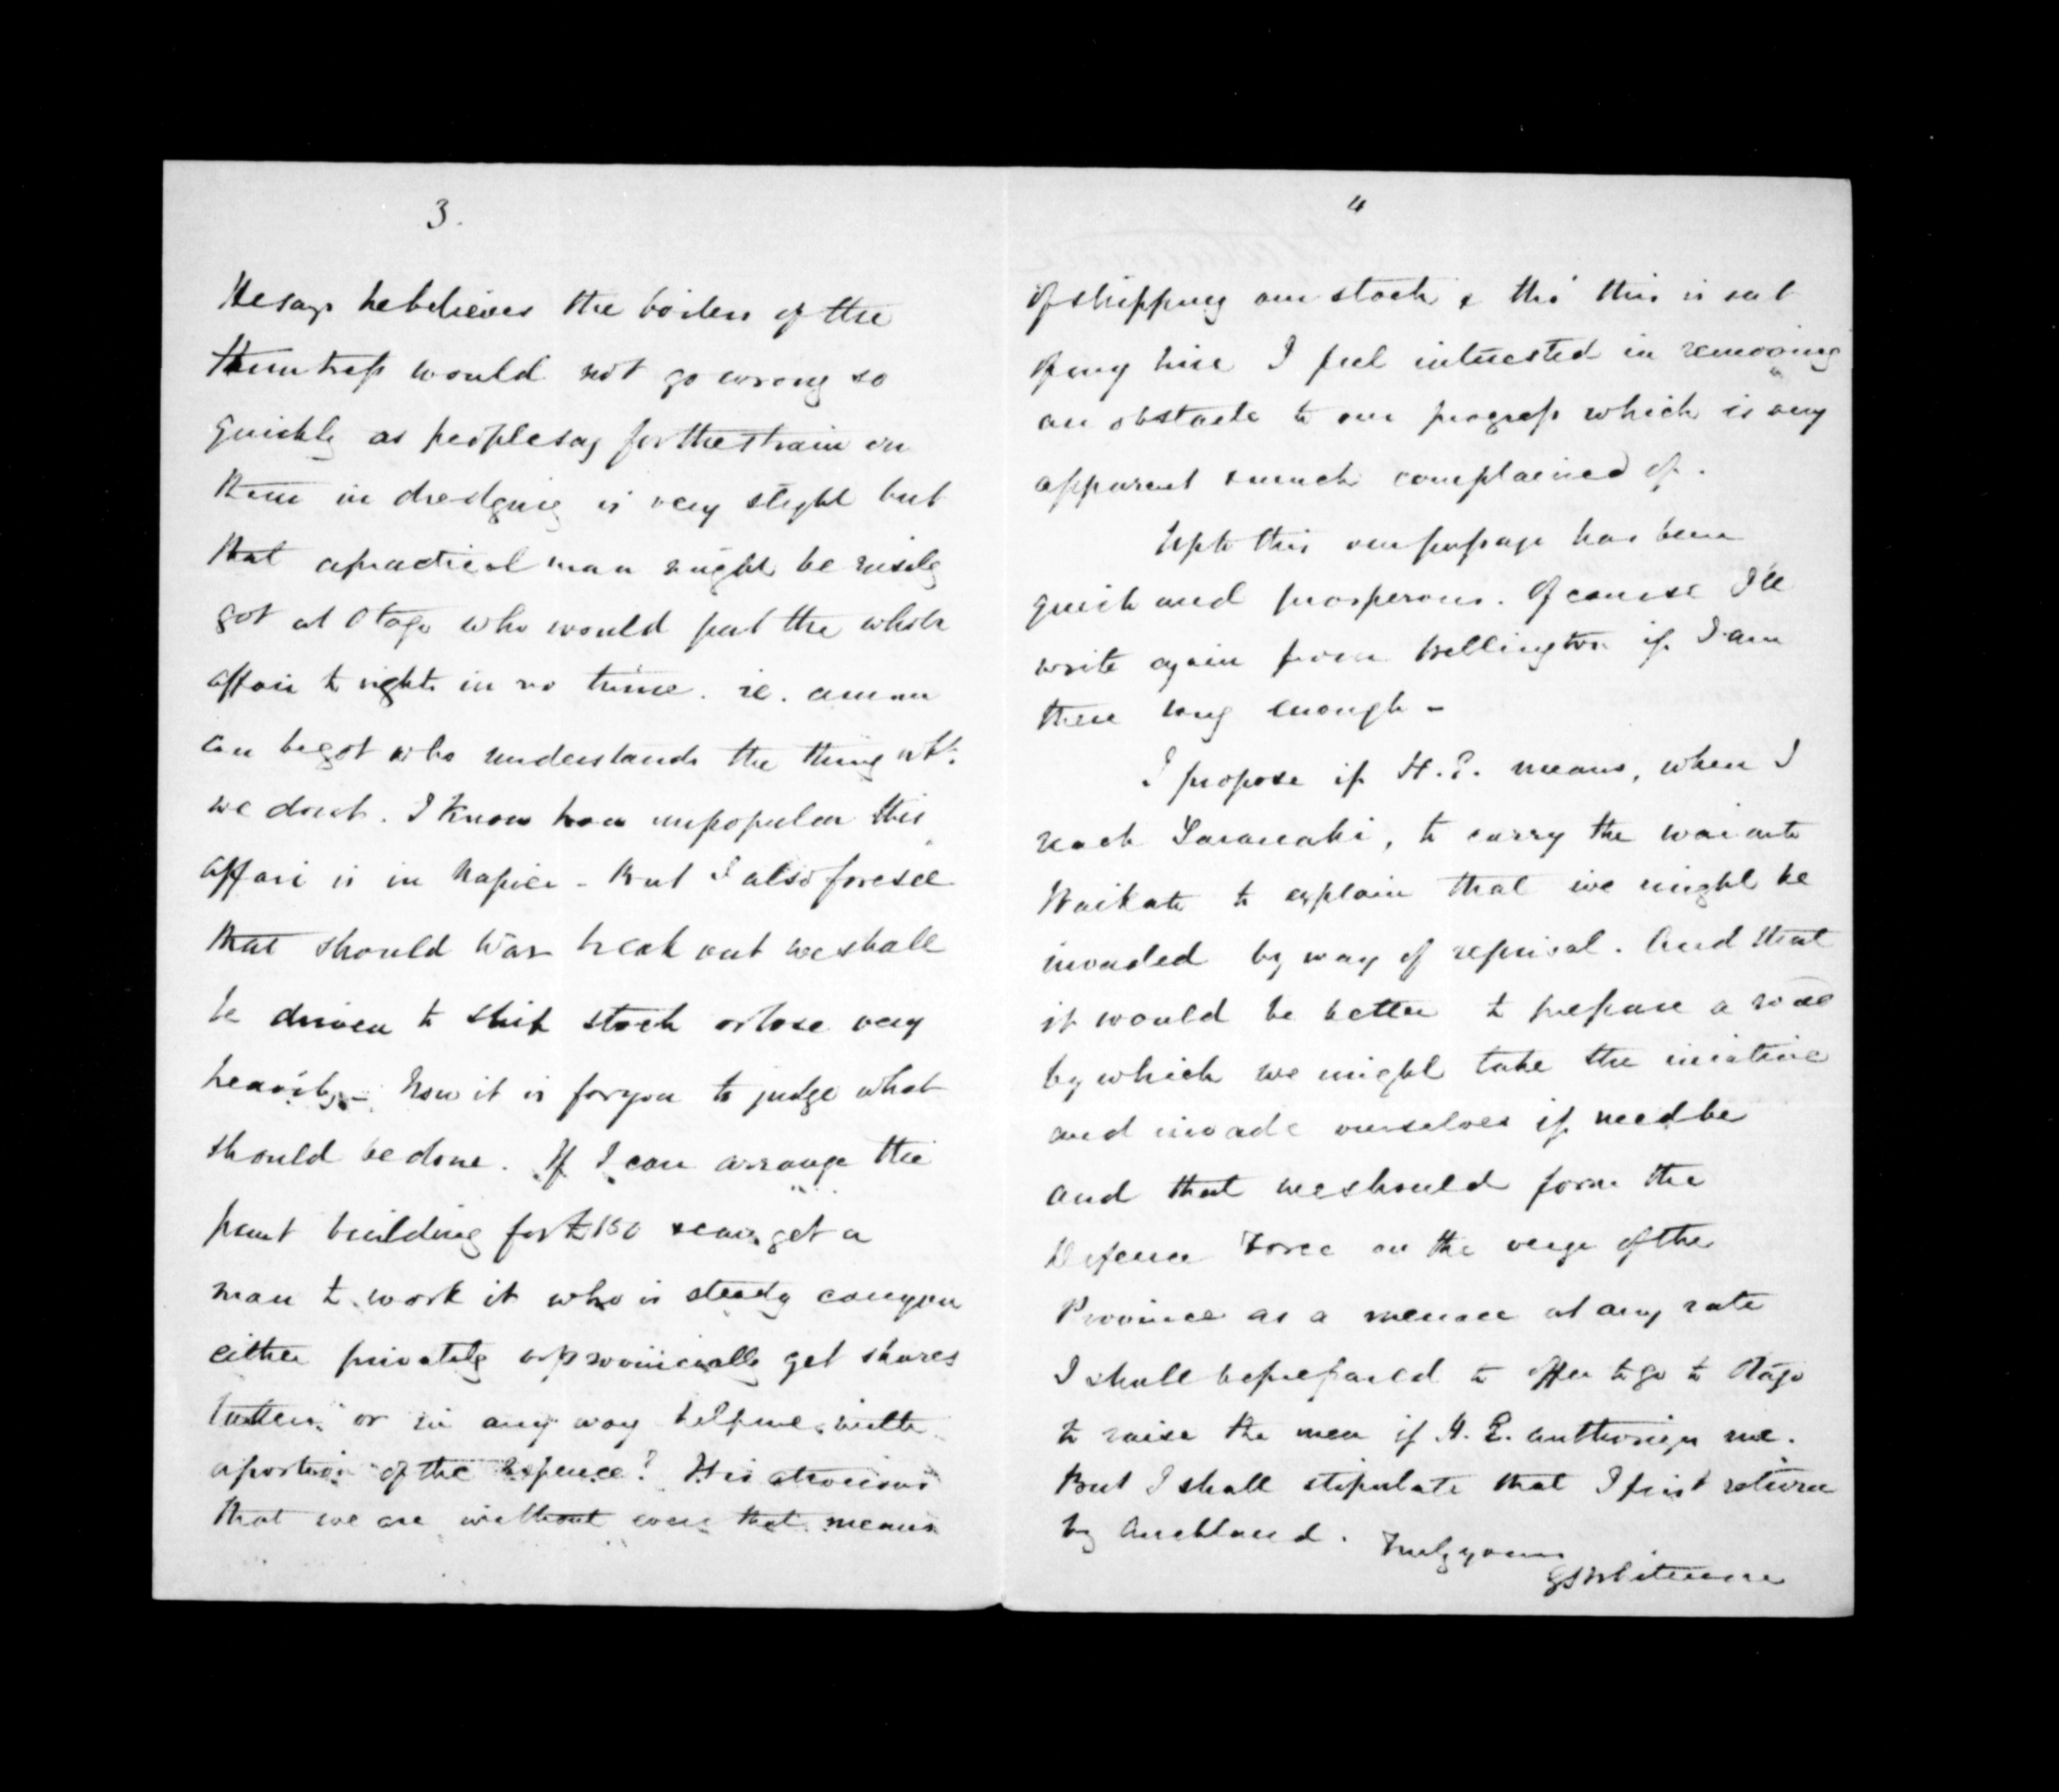 3.
He says he believes the boilers of the
would not go wrong so
quickly as people say for the strain on
them in dredging is very slight but
that a practical man might be easily
got at Otago who would put the whole
affair to rights in no time. ie. a man
can be got who understands the thing wh:
we dont. I know how unpopular this
affair is in Napier - But I also foresee
that should War break out we shall
be driven to ship stock or lose very
heavily - Now it is for you to judge what
should be done. If I can arrange the
punt building for £150 & can get a
man to work it who is steady can you
either privately or provincially get shares
taken or in any way help me with
a portion of the expence? It is atrocious
that we are without even that means
4
of shipping our stock & tho' this is not
my line I feel interested in removing
an obstacle to our progress which is very
apparent & much complained of.
Up to this our passage has been
quick and prosperous. Of course I'll
write again from Wellington if I am
there long enough -
I propose if H.E. means, when I
reach Taranaki, to carry the war into
Waikato to explain that we might be
invaded by way of reprisal. And that
it would be better to prepare a road
by which we might take the iniative
and invade ourselves if need be
and that we should form the
Defence Force on the verge of the
Province as a menace at any rate
I shall be prepared to offer to go to Otago
to raise the men if H.E. authorizes me.
But I shall stipulate that I first return
by Auckland. Truly yours
GSWhitmore